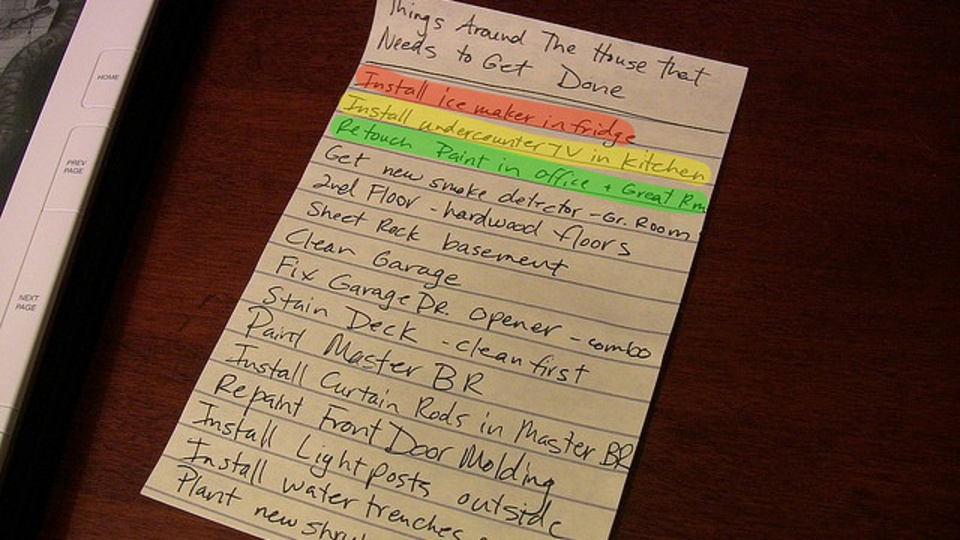 HOME
PREV
PAGE
NEXT
PAGE
Things Around The House that
Needs to Get Done
Install ice maker in fridge
Install undercounter TV in kitchen
Retouch Paint in office + Great Rm
Get new smoke detector - Gr. Room
2nd Floor - hardwood floors
Sheet Rock basement
Clean Garage
Fix Garage DR. opener - combo
Stain Deck - clean first
Paint Master BR
Install Curtain Rods in Master BR
Repaint Front Door Molding
Install Lightposts outside
Install water trenches
Plant new